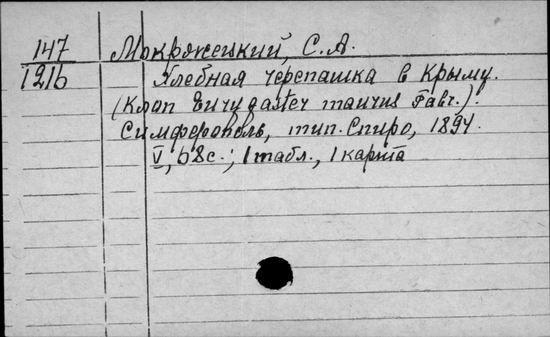 147 Мокржецкий, С. А.
1216 Хлебная черепашка в Крыму.
(Клоп Eurygaster maurus Fabr.).
Симферополь, тип. Спиро, 1894.
V, 68 с.; 1 табл., 1 карта